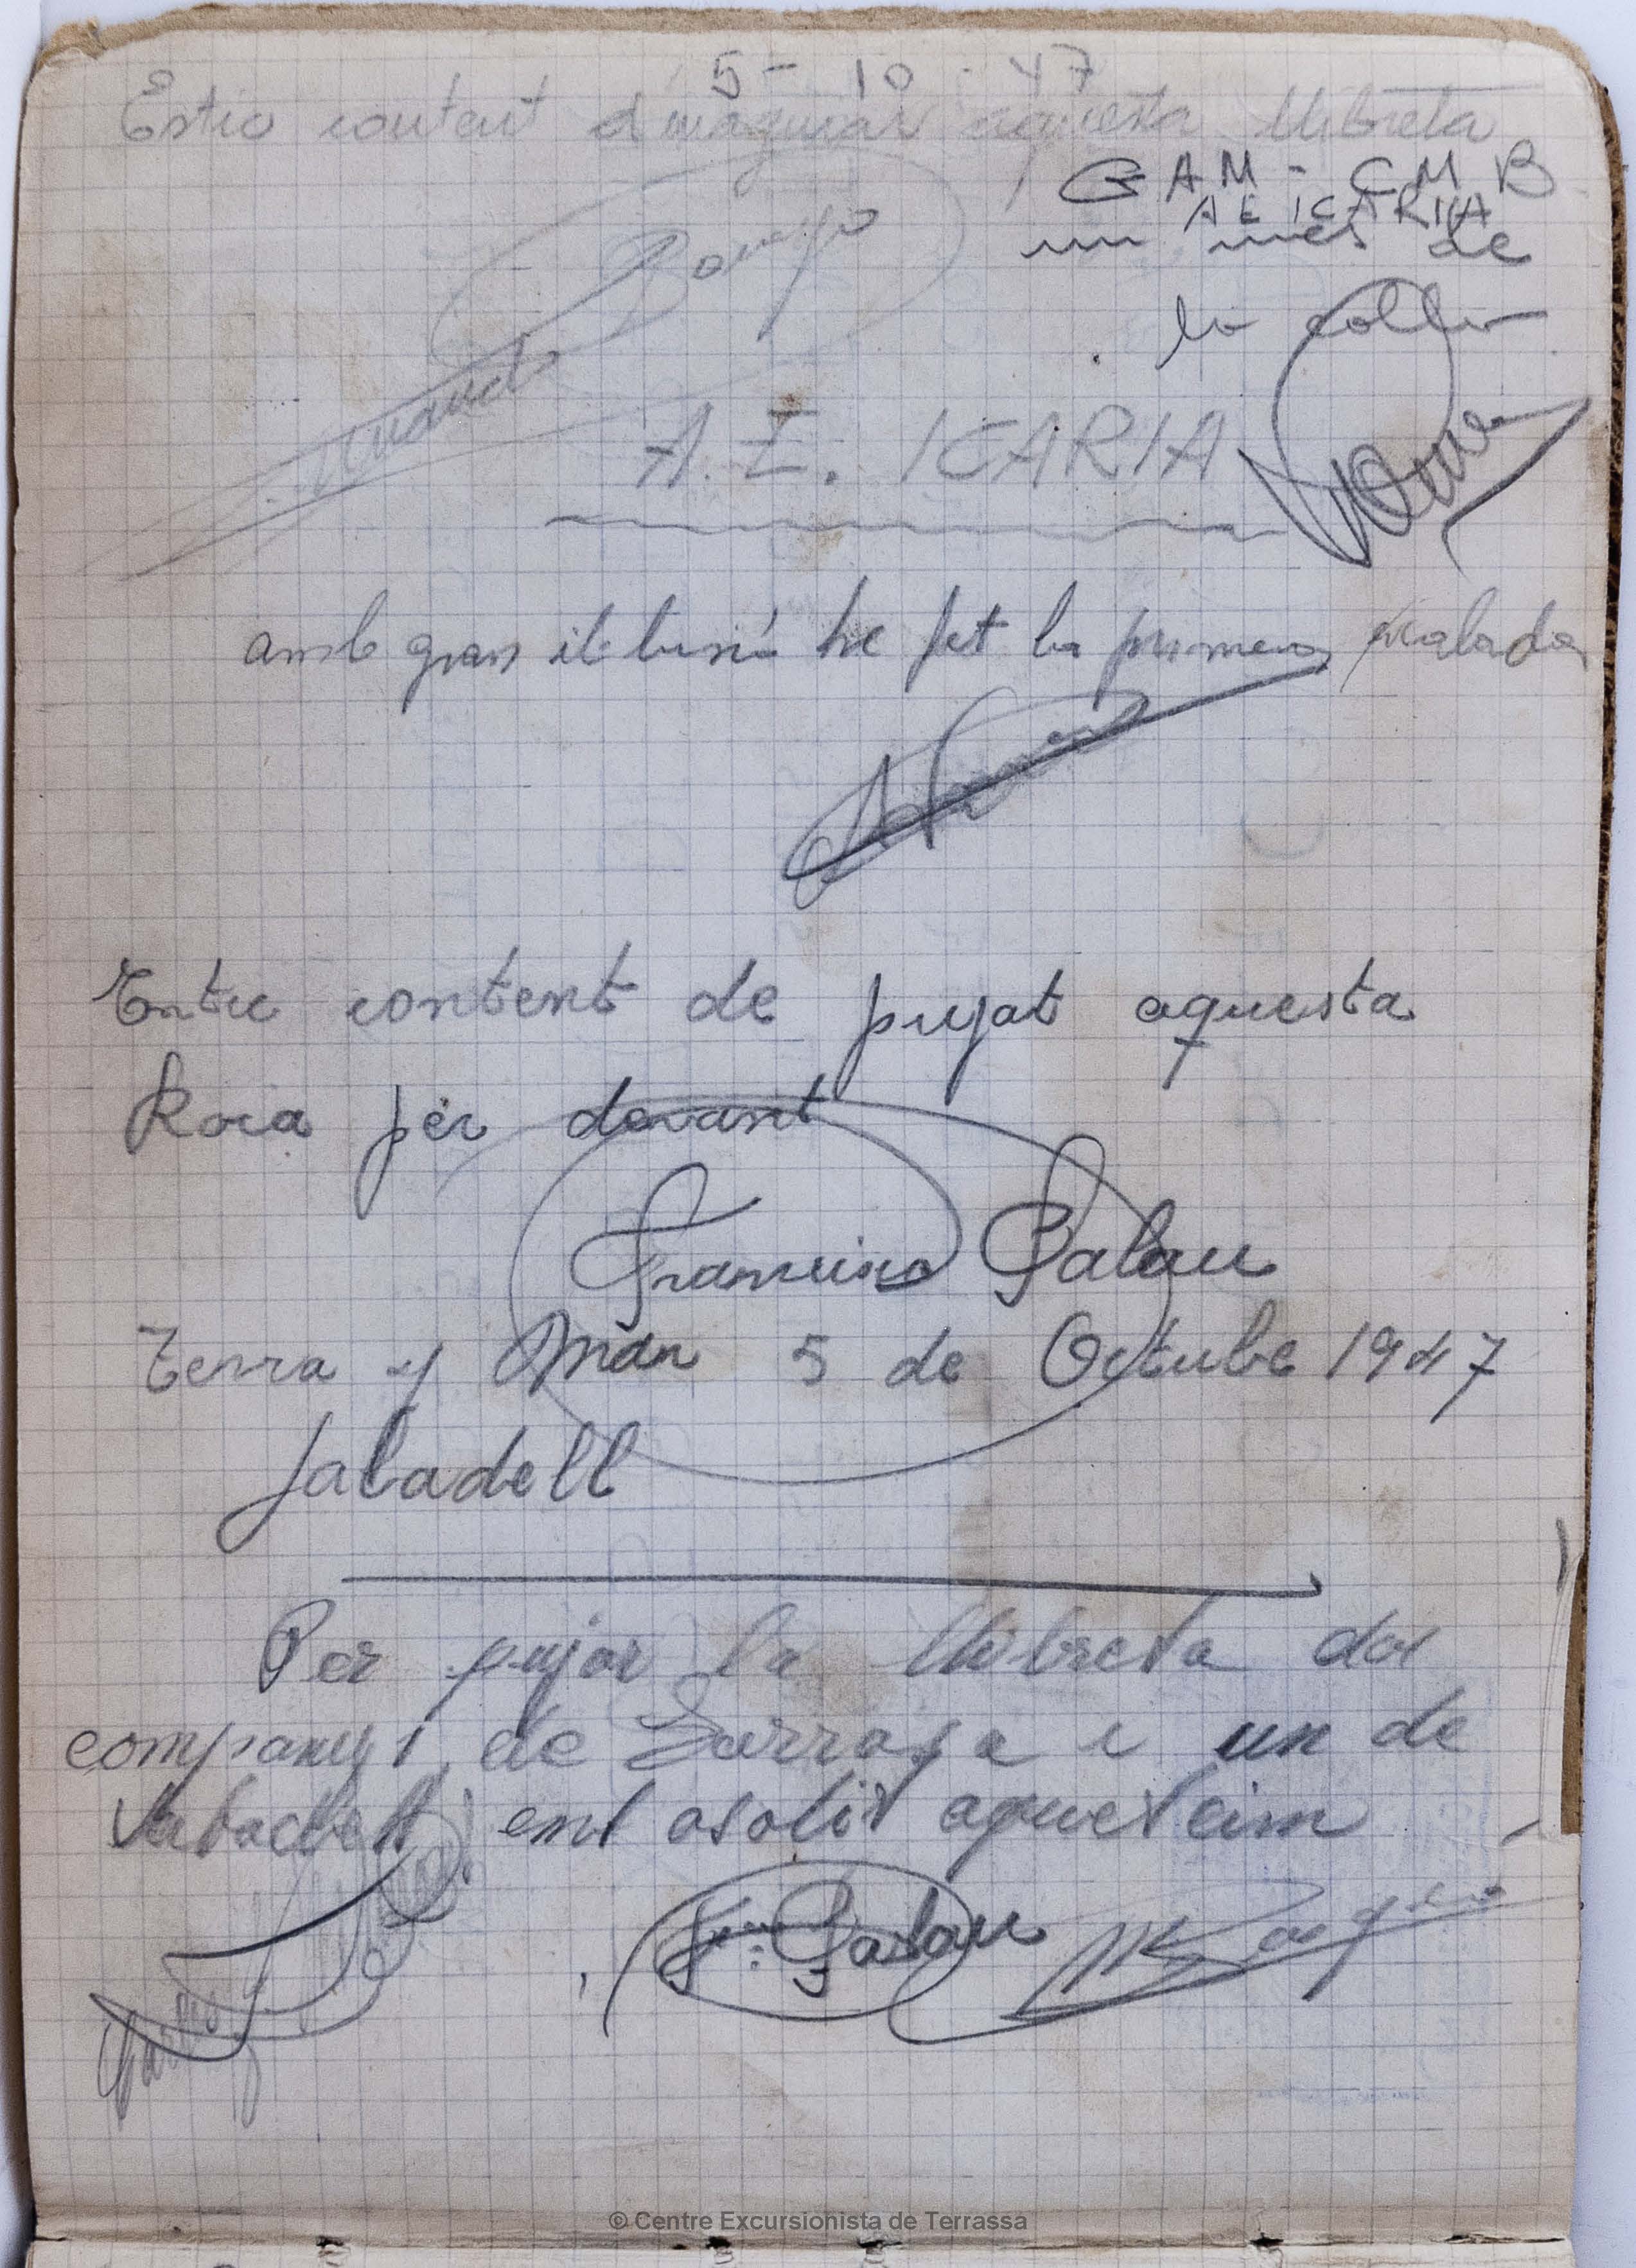 5 - 10 - 47
Estic content d'inaugurar aquesta llibreta
GAM - CMB
AE ICARIA
un mes de
la colla
A.E. ICARIA
amb gran il·lusió he fet la primera escalada
content de pujat aquesta
Roca per davant
Francisco Palau
Terra y Mar 5 de Octube 1947
Sabadell
Per pujar la llibreta dos
companys de Tarrasa i un de
Sabadell, ent asolit aquet cim
Palau
© Centre Excursionista de Terrassa